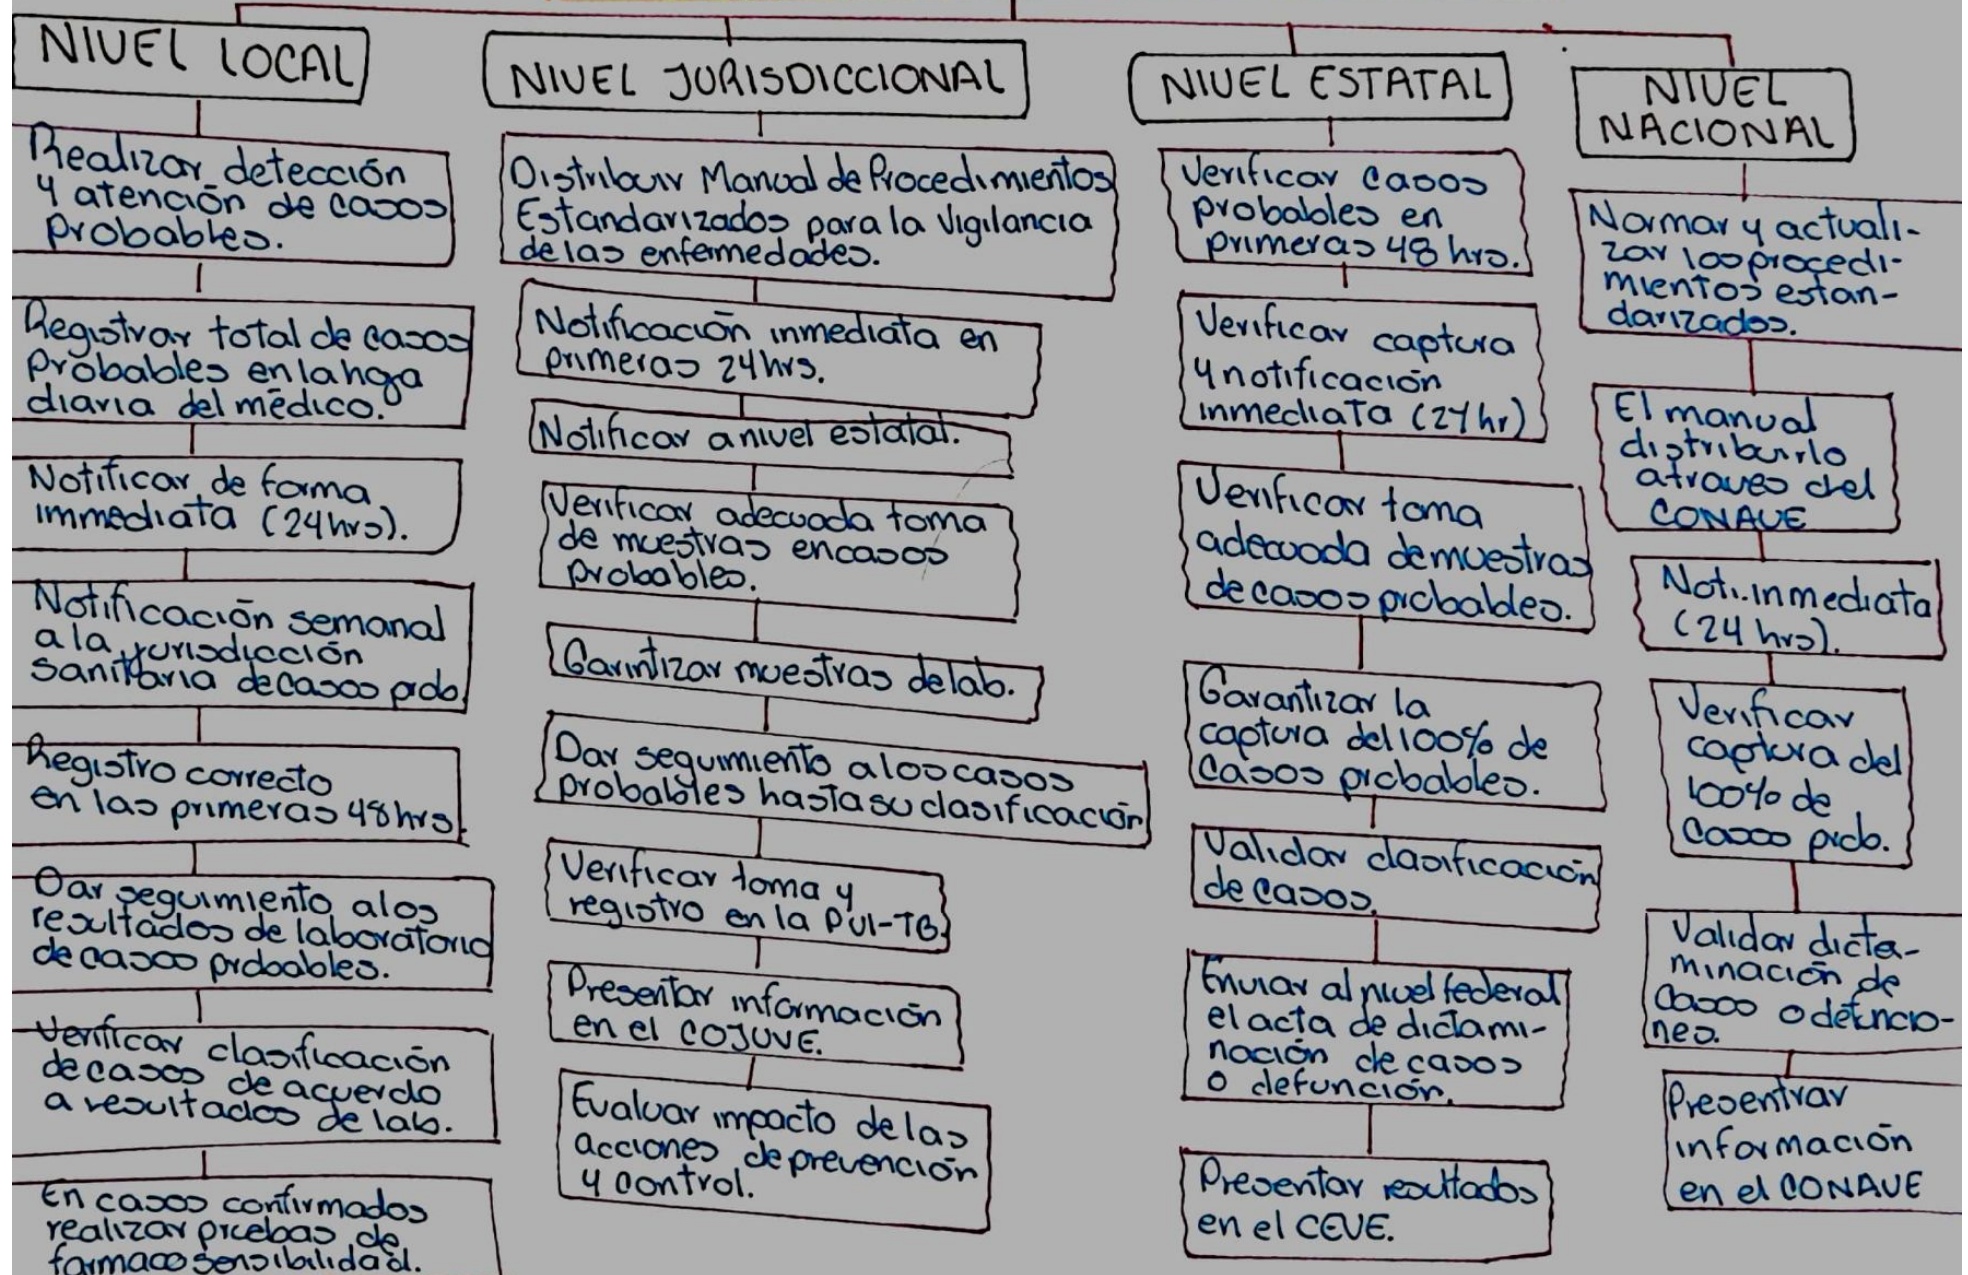 NIVEL LOCAL
Realizar detección
y atención de casos
probables.
Registrar total de casos
probables en la hoja
diaria del médico.
Notificar de forma
immediata (24hrs).
Notificación semanal
a la jurisdicción
sanitaria de casos prob.
Registro correcto
en las primeras 48hrs.
Dar seguimiento a los
resultados de laboratorio
de casos probables.
Verificar clasificación
de casos de acuerdo
a resultados de lab.
En casos confirmados
realizar pruebas de
farmacosensibilidad.
NIVEL JURISDICCIONAL
Distribuir Manual de Procedimientos
Estandarizados para la Vigilancia
de las enfermedades.
Notificación inmediata en
primeras 24hrs.
Notificar a nivel estatal.
Verificar adecuada toma
de muestras en casos
probables.
Garintizar muestras de lab.
Dar seguimiento a los casos
probables hasta su clasificación
Verificar toma y
registro en la PUI-TB.
Presentar información
en el COJUVE.
Evaluar impacto de las
acciones de prevención
y control.
NIVEL ESTATAL
Verificar casos
probables en
primeras 48 hrs.
Verificar captura
y notificación
inmediata (24hr)
Verificar toma
adecuada de muestras
de casos probables.
Garantizar la
captura del 100% de
casos probables.
Validar clasificación
de casos.
Enviar al nivel federal
el acta de dictami-
nación de casos
o defunción.
Presentar resultados
en el CEVE.
NIVEL
NACIONAL
Normar y actuali-
zar los procedi-
mientos estan-
darizados.
El manual
distribuirlo
a traves del
CONAVE
Noti. inmediata
(24 hrs).
Verificar
captura del
100% de
casos prob.
Validar dicta-
minación de
casos o defuncio-
nes.
Presentrar
información
en el CONAVE